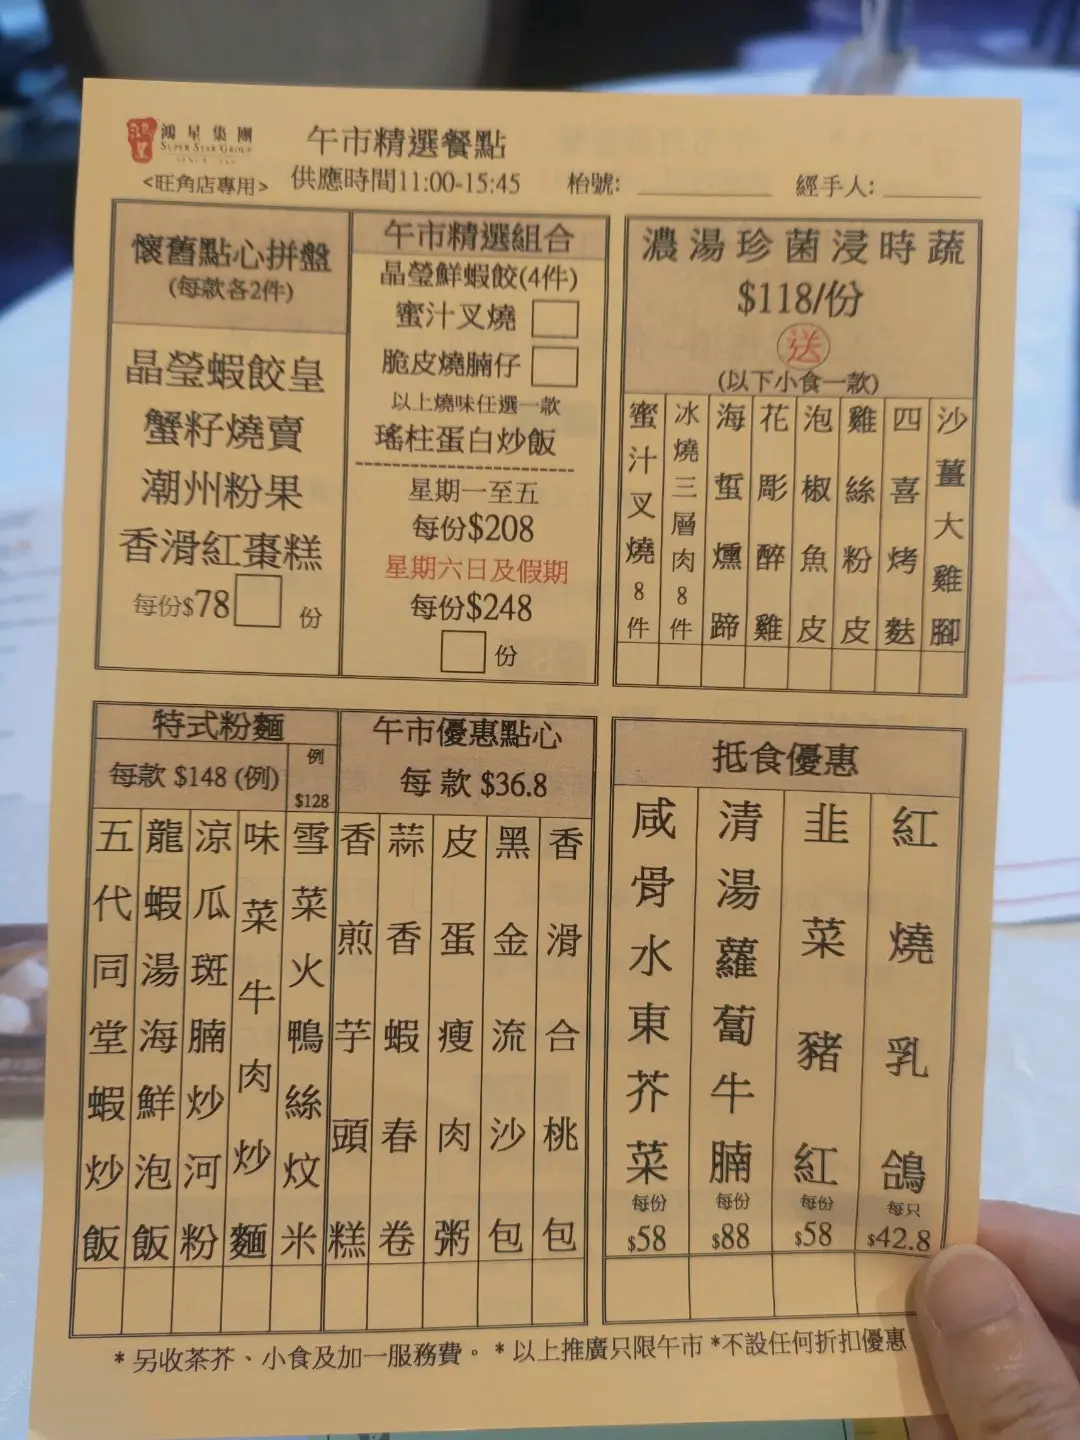 鴻星集團
SUPER STAR GROUP
午市精選餐點
<旺角店專用>
供應時間11:00-15:45
枱號:
經手人:
懷舊點心拼盤
(每款各2件)
晶瑩蝦餃皇
蟹籽燒賣
潮州粉果
香滑紅棗糕
每份$78
份
午市精選組合
晶瑩鮮蝦餃(4件)
蜜汁叉燒
脆皮燒腩仔
以上燒味任選一款
瑤柱蛋白炒飯
星期一至五
每份$208
星期六日及假期
每份$248
份
濃湯珍菌浸時蔬
$118/份
送
(以下小食一款)
蜜汁叉燒8件
冰燒三層肉8件
海蜇燻蹄
花彫醉雞
泡椒魚皮
雞絲粉皮
四喜烤麩
沙薑大雞腳
特式粉麵
每款 $148 (例)
例
$128
五代同堂蝦炒飯
龍蝦湯海鮮泡飯
涼瓜斑腩炒河粉
味菜牛肉炒麵
雪菜火鴨絲炆米
午市優惠點心
每款 $36.8
香煎芋頭糕
蒜香蝦春卷
皮蛋瘦肉粥
黑金流沙包
香滑合桃包
抵食優惠
咸骨水東芥菜
每份
$58
清湯蘿蔔牛腩
每份
$88
韭菜豬紅
每份
$58
紅燒乳鴿
每只
$42.8
* 另收茶芥、小食及加一服務費。 * 以上推廣只限午市 *不設任何折扣優惠